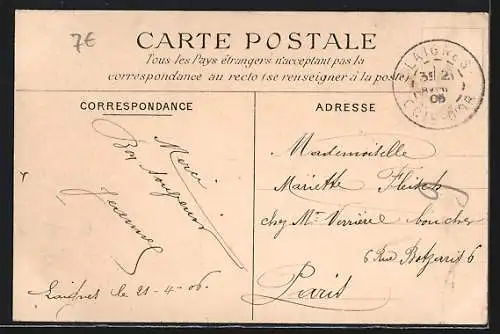 7€
CARTE POSTALE
Tous les Pays étrangers n'acceptant pas la
correspondance au recto (se renseigner à la poste)
LAIGNES
3E 21
AVRIL
06
COTE-D'OR
CORRESPONDANCE
Merci
Bon
Laignes le 21-4-06.
ADRESSE
Mademoiselle
Mariette
chez Mr Verrière boucher
6 Rue Botzarris 6
Paris